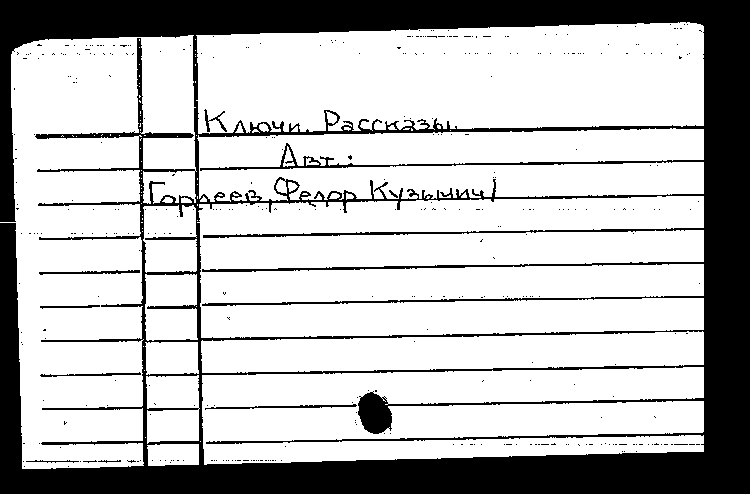 Ключи. Рассказы.
Авт.:
Гордеев, Федор Кузьмич/